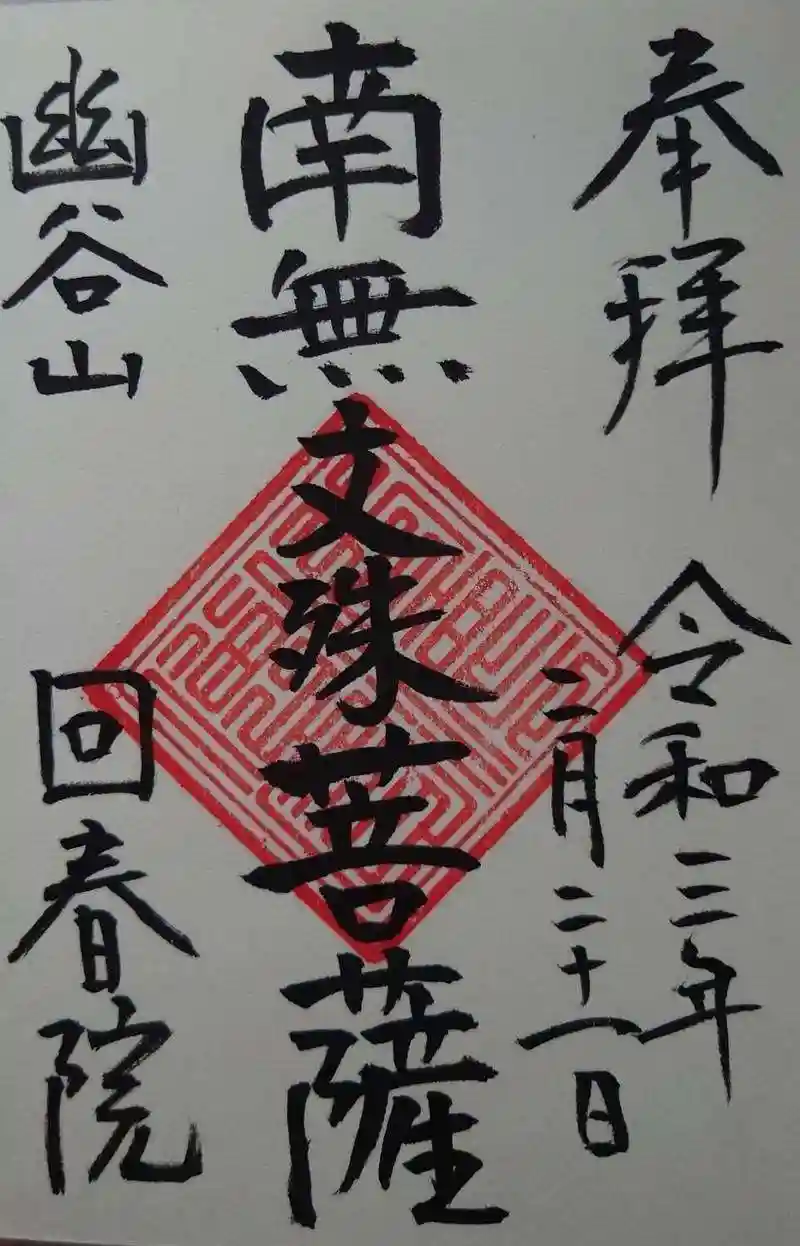 奉拝 令和三年
二月二十一日
南無文殊菩薩
幽谷山 回春院